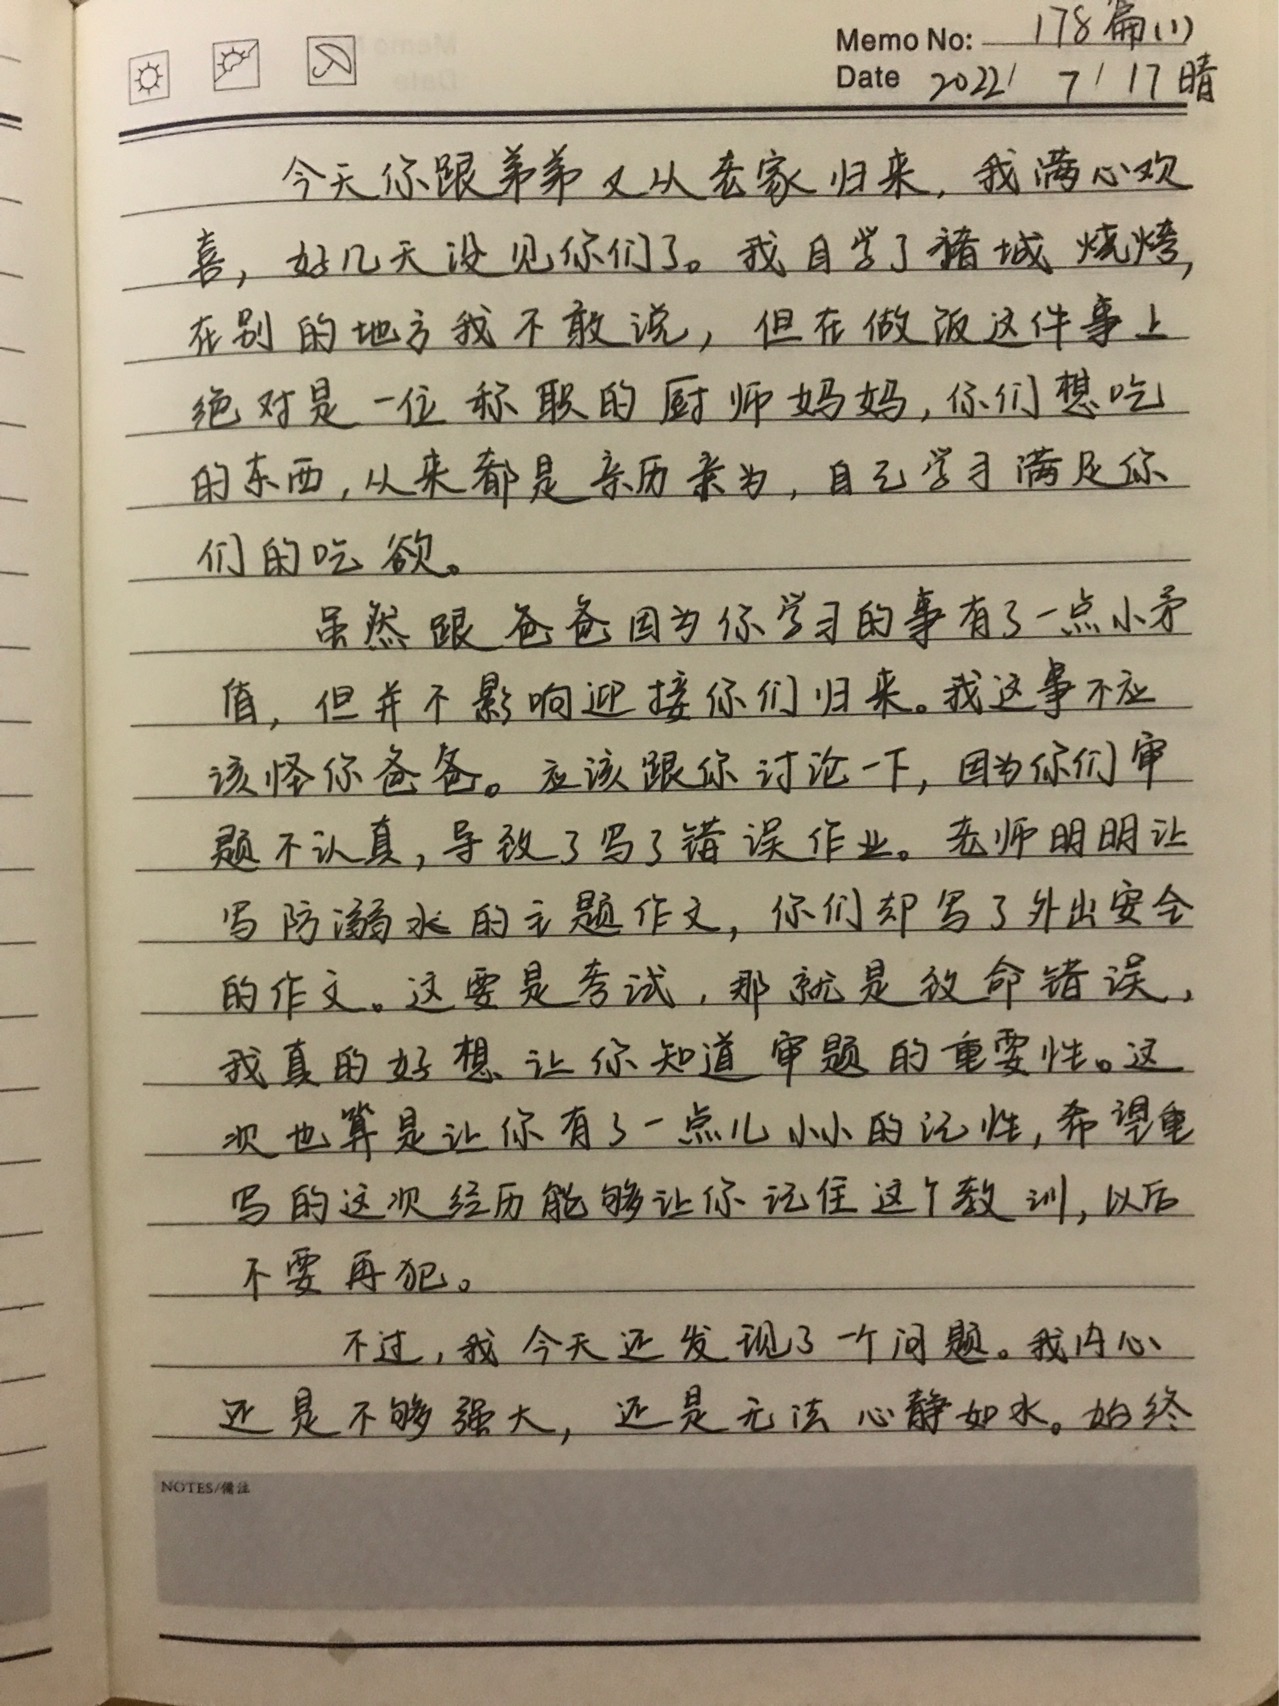 Memo No: 178篇(1)
Date 2022/ 7/ 17 晴
今天你跟弟弟又从老家归来，我满心欢
喜，好几天没见你们了。我自学了诸城烧烤，
在别的地方我不敢说，但在做饭这件事上
绝对是一位称职的厨师妈妈，你们想吃
的东西，从来都是亲历亲为，自己学习满足你
们的吃欲。
虽然跟爸爸因为你学习的事有了一点小矛
值，但并不影响迎接你们归来。我这事不应
该怪你爸爸。应该跟你讨论一下，因为你们审
题不认真，导致了写了错误作业。老师明明让
写防溺水的主题作文，你们却写了外出安全
的作文。这要是考试，那就是致命错误，
我真的好想让你知道审题的重要性。这
次也算是让你有了一点儿小小的记性，希望重
写的这次经历能够让你记住这个教训，以后
不要再犯。
不过，我今天还发现了一个问题。我内心
还是不够强大，还是无法心静如水。始终
NOTES/備注